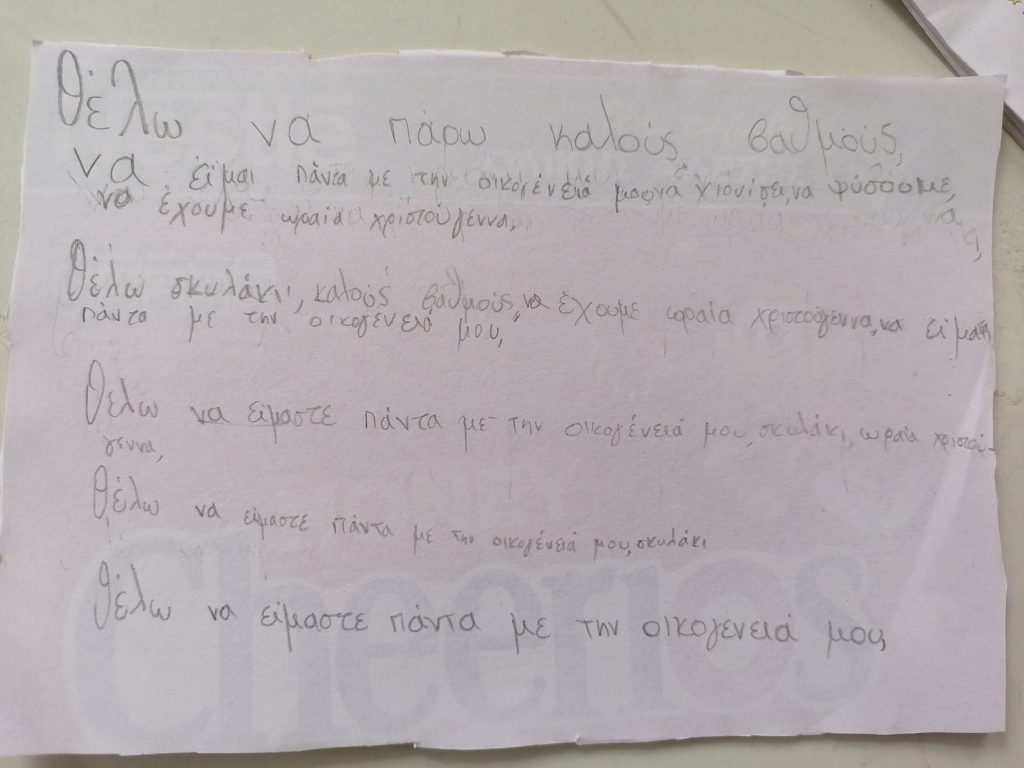 θέλω να πάρω καλούς βαθμούς,
να είμαι πάντα με την οικογένειά μου, να χιονίσει, να φύσουμε,
να έχουμε ωραία χριστούγεννα,
να
θέλω σκυλάκι, καλούς βαθμούς, να έχουμε ωραία χριστόυγεννα, να είμαστε
πάντα με την οικογένειά μου,
θέλω να είμαστε πάντα με την οικογένειά μου, σκυλάκι, ωραία χριστού-
γεννα,
θέλω να είμαστε πάντα με την οικογένειά μου, σκυλάκι
θέλω να είμαστε πάντα με την οικογενειά μου,
Cheerios